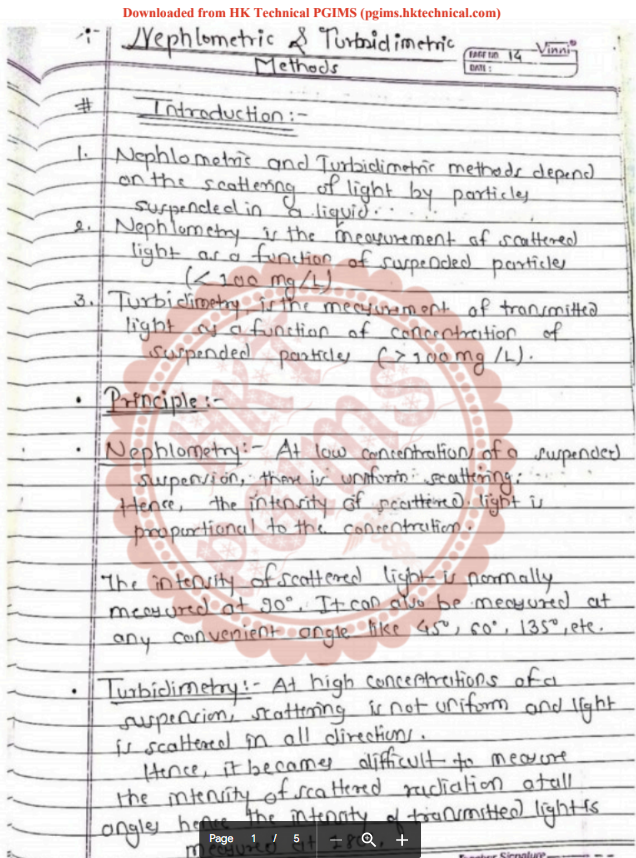 Downloaded from HK Technical PGIMS (pgims.hktechnical.com)
Nephlometric & Turbidimetric
Methods
PAGE NO 14
DATE:
Vinni
# Introduction :-
1. Nephlometric and Turbidimetric methods depend
on the scattering of light by particles
suspended in a liquid.
2. Nephlometry is the measurement of scattered
light as a function of suspended particles
(<100 mg/L)
3. Turbidimetry is the measurement of transmitted
light as a function of concentration of
suspended particles (>100 mg /L).
• Principle :-
• Nephlometry :- At low concentration of a suspended
suspension, there is uniform scattering.
Hence, the intensity of scattered light is
proportional to the concentration.
The intensity of scattered light is normally
measured at 90°. It can also be measured at
any convenient angle like 45°, 60°, 135°, etc.
• Turbidimetry :- At high concentrations of a
suspension, scattering is not uniform and light
is scattered in all directions.
Hence, it becomes difficult to measure
the intensity of scattered radiation at all
angles hence the intensity of transmitted light is
measured at 180°.
HKT
PGIMS
Page 1 / 5